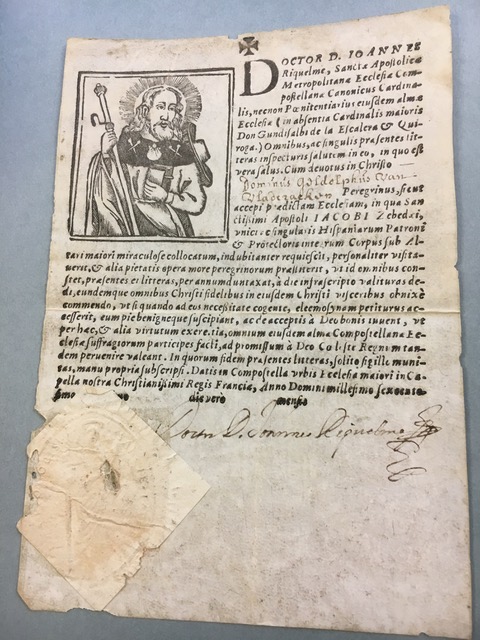 DOCTOR D. IOANNES
Riquelme, Sanctæ Apostolicæ
Metropolitanæ Ecclesiæ Com-
postellanæ Canonicus Cardina-
lis, necnon Pœnitentiarius eiusdem almæ
Ecclesiæ (in absentia Cardinalis maioris
Don Gundisalbi de la Escalera & Qui-
roga.) Omnibus, ac singulis præsentes lit-
teras inspecturis salutem in eo, in quo est
vera salus. Cum deuotus in Christo
Dominus van
Peregrinus, sicut
accepi prædictam Ecclesiam, in qua San
ctissimi Apostoli IACOBI Zebedæi,
vnici & singularis Hispaniarum Patroni
& Protectoris integrum Corpus sub Al-
tari maiori miraculose collocatum, indubitanter requiescit, personaliter visita-
uerit, & alia pietatis opera more peregrinorum præstiterit, vt id omnibus cons-
tet, præsentes ei litteras, per annum duntaxat, à die infrascripto valituras de-
di, eundemque omnibus Christi fidelibus in eiusdem Christi visceribus obnixè
commendo, vt si quando ad eos necessitate cogente, eleemosynam petiturus ac-
cesserit, eum pie benigneque suscipiant, ac de acceptis à Deo bonis iuuent, vt
per hæc, & alia virtutum exercitia, omnium eiusdem almæ Compostellanæ Ec
clesiæ suffragiorum participes facti, ad promissum à Deo Cœleste Regnum tan-
dem peruenire valeant. In quorum fidem præsentes litteras, solito sigillo muni-
tas, manu propria subscripsi. Datis in Compostella vrbis Ecclesia maiori in Ca-
pella nostra Christianissimi Regis Franciæ, Anno Domini millesimo sexcente
simo die vero mensis
D. Joannes Riquelme